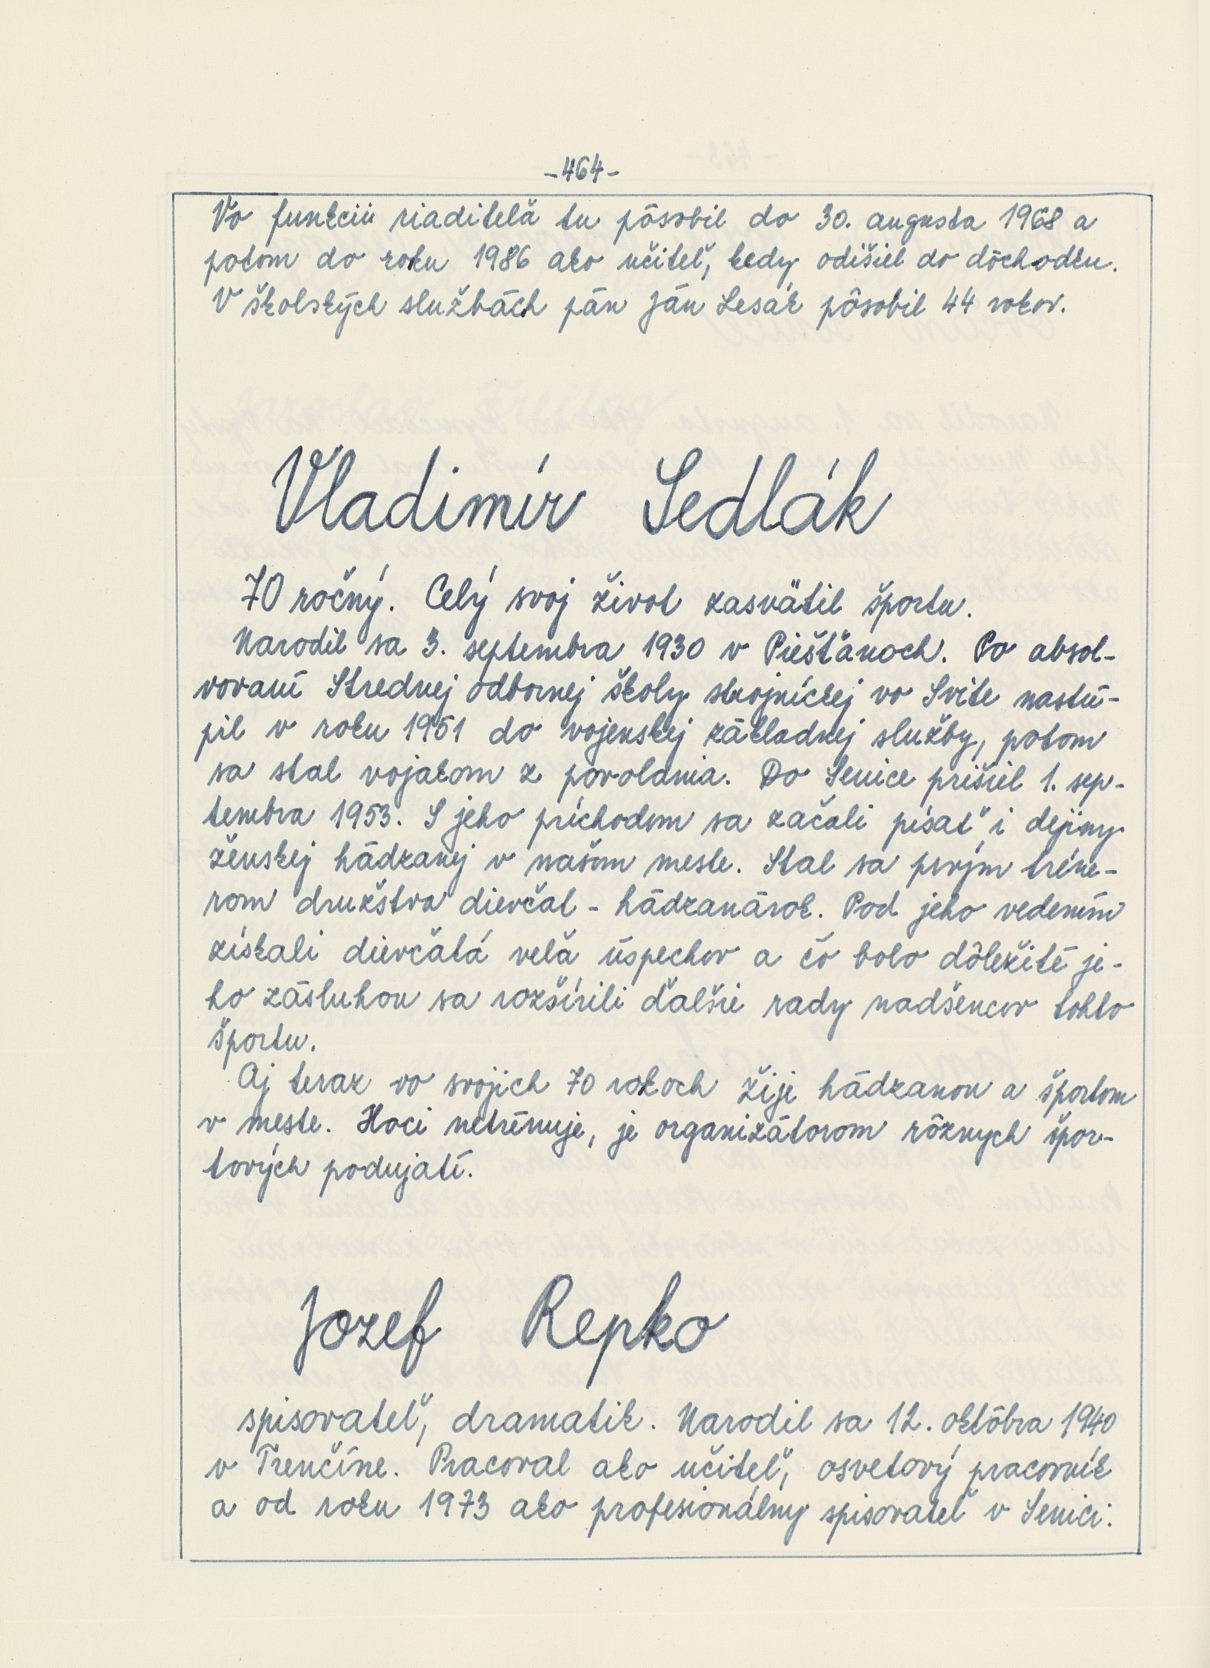 -464-
Vo funkcii riaditeľa tu pôsobil do 30. augusta 1968 a
potom do roku 1986 ako učiteľ, kedy odišiel do dôchodku.
V školských službách pán Ján Lesák pôsobil 44 rokov.
Vladimír Sedlák
70 ročný. Celý svoj život zasvätil športu.
Narodil sa 3. septembra 1930 v Piešťanoch. Po absol-
vovaní Strednej odbornej školy strojníckej vo Svite nastú-
pil v roku 1951 do vojenskej základnej služby, potom
sa stal vojakom z povolania. Do Senice prišiel 1. sep-
tembra 1953. S jeho príchodom sa začali písať i dejiny
ženskej hádzanej v našom meste. Stal sa prvým tréne-
rom družstva dievčat - hádzanárok. Pod jeho vedením
získali dievčatá veľa úspechov a čo bolo dôležité je-
ho zásluhou sa rozšírili ďalšie rady nadšencov tohto
športu.
Aj teraz vo svojich 70 rokoch žije hádzanou a športom
v meste. Hoci netrénuje, je organizátorom rôznych špor-
tových podujatí.
Jozef Repko
spisovateľ, dramatik. Narodil sa 12. októbra 1940
v Trenčíne. Pracoval ako učiteľ, osvetový pracovník
a od roku 1973 ako profesionálny spisovateľ v Senici.